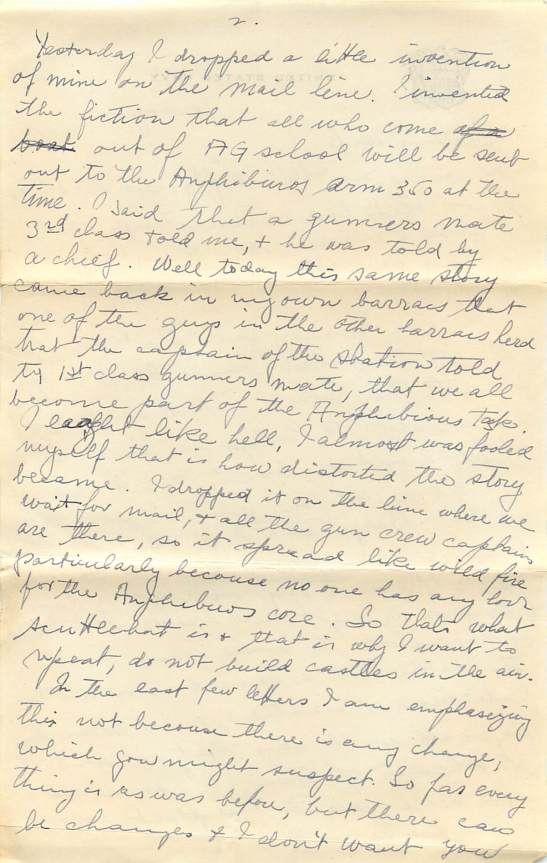 2.
Yesterday I dropped a little invention
of mine on the mail line. I invented
the fiction that all who come
out of AG school will be sent
out to the Amphibiuos arm 360 at the
time. I said that a gunners mate
3rd class told me, + he was told by
a chief. Well today this same story
came back in my own barracs that
one of the guys in the other barracs herd
that the captain of the station told
ty 1st class gunners mate, that we all
become part of the Amphibious
I laught like hell, I almost was fooled
myself that is how distorted the story
became. I dropped it on the line where we
wait for mail, + all the gun crew captains
are there, so it spread like wild fire
particularly because no one has any love
for the Amphibuos core. So thats what
scuttlebut is + that is why I want to
repeat, do not build castles in the air.
In the last few letters I am emplasizing
this not because there is any change,
which you might suspect. So far every
thing is as was before, but there can
be changes + I don't want you